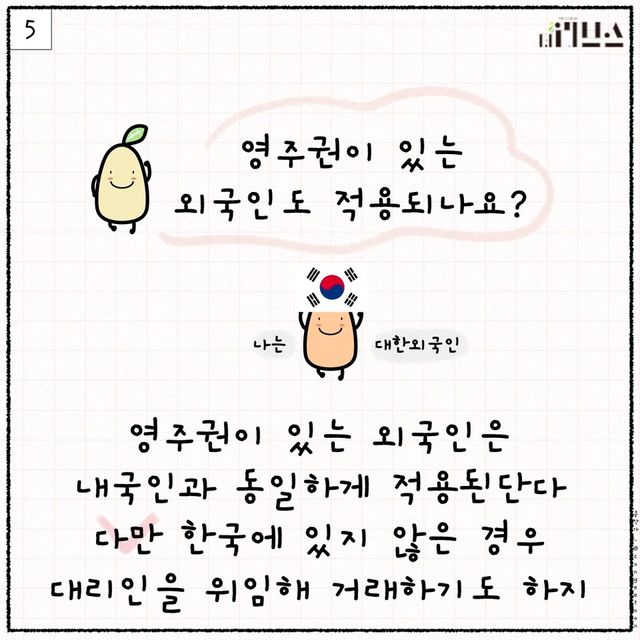 5
영주권이 있는
외국인도 적용되나요?
나는
대한외국인
영주권이 있는 외국인은
내국인과 동일하게 적용된단다
다만 한국에 있지 않은 경우
대리인을 위임해 거래하기도 하지